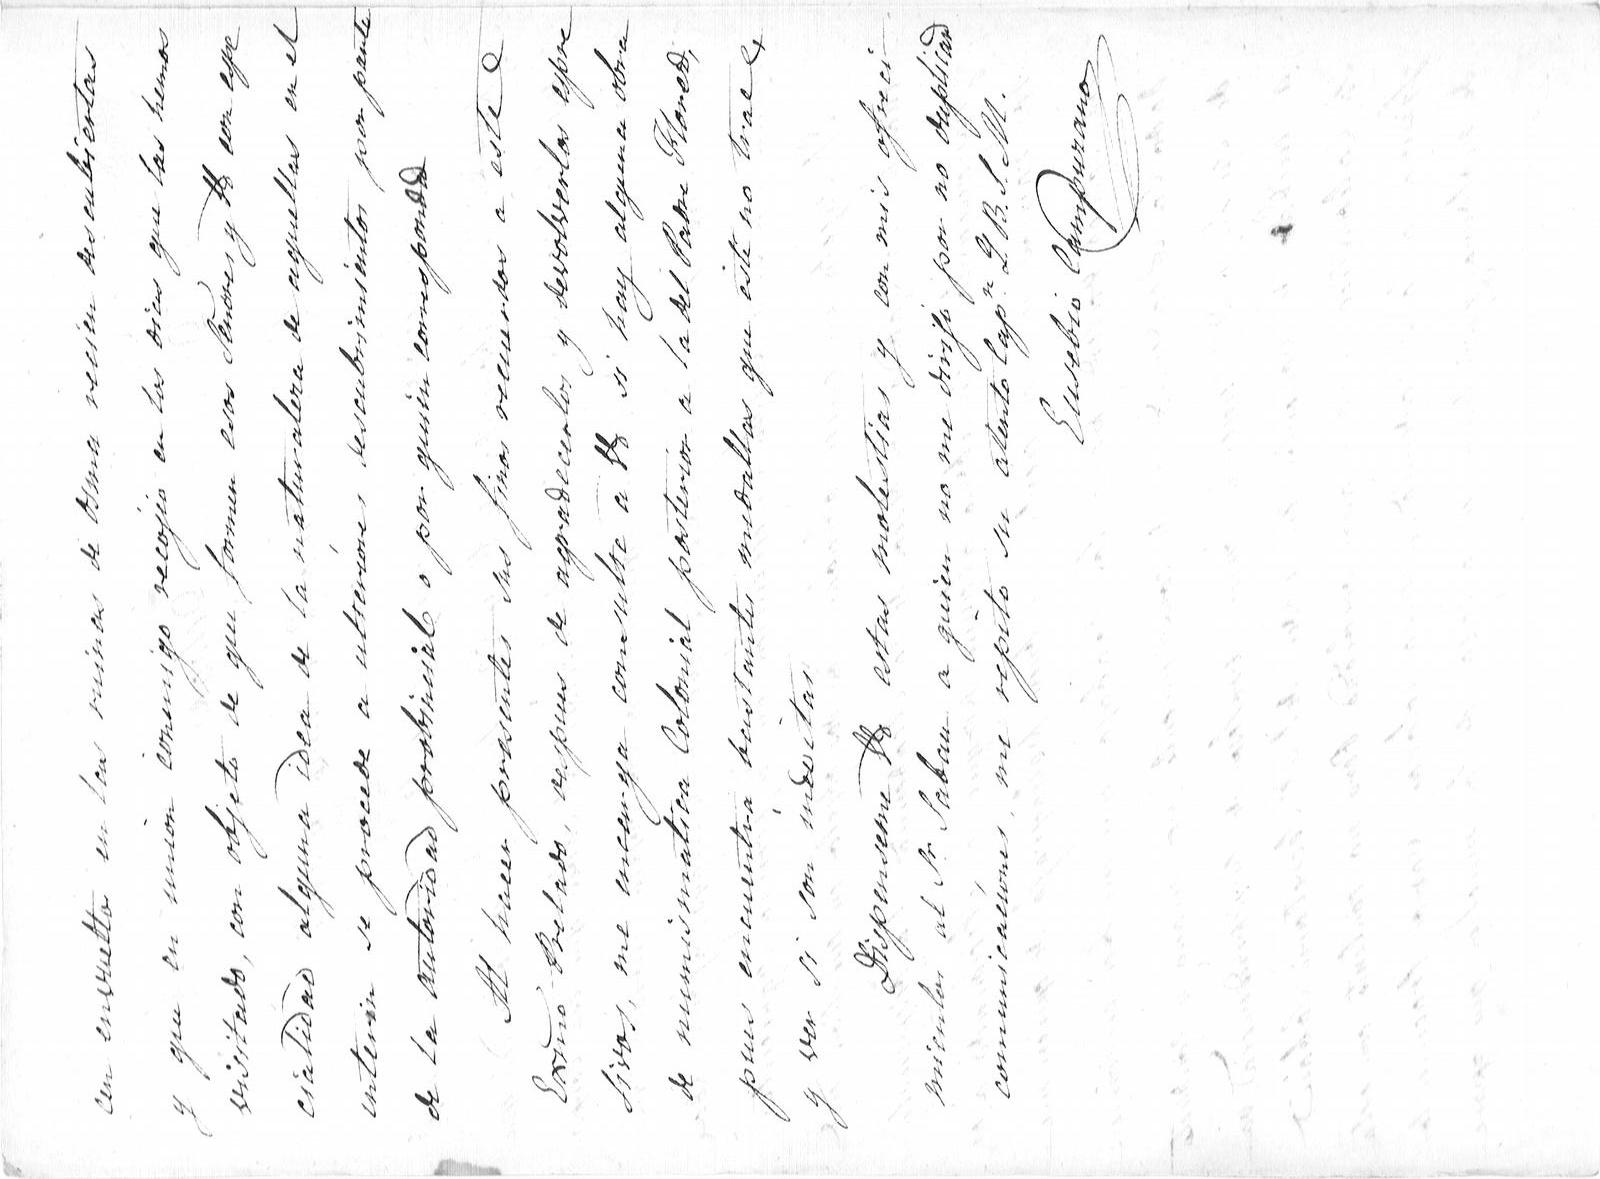 cen envuelto en las ruinas de Osma recien descubiertas
y que en union conmigo recojio en los dias que las hemos
visitado, con objeto de que formen esos Señores y V. con espe
cialidad alguna idea de la naturaleza de aquellas en el
interin se procede a ulteriores descubrimientos por parte
de la autoridad probincial o por quien corresponda
Al hacer presentes sus finos recuerdos a este
Excmo Prelado, despues de agradecerlos y devolverlos espre
sivos, me encarga consulte a V. si hay alguna obra
de numismatica Colonial posterior a la del Padre Florez,
pues encuentra bastantes medallas que este no trae
y ver si son inéditas
Dispenseme V. estas molestias y con mis ofreci
mientos al Sr. Sabau a quien no me dirijo por no duplicar
comunicaciones, me repito su atento Capn. Q. B. S. M.
Eusebio Campuzano